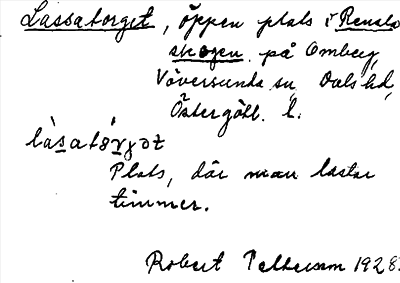 Lassatorget, öppen plats i Renals
skogen på Omberg,
Väversunda sn, Dals hd,
Östergötl. l.
làsatórgət
Plats, där man lastar
timmer.
Robert Pettersson 1928.